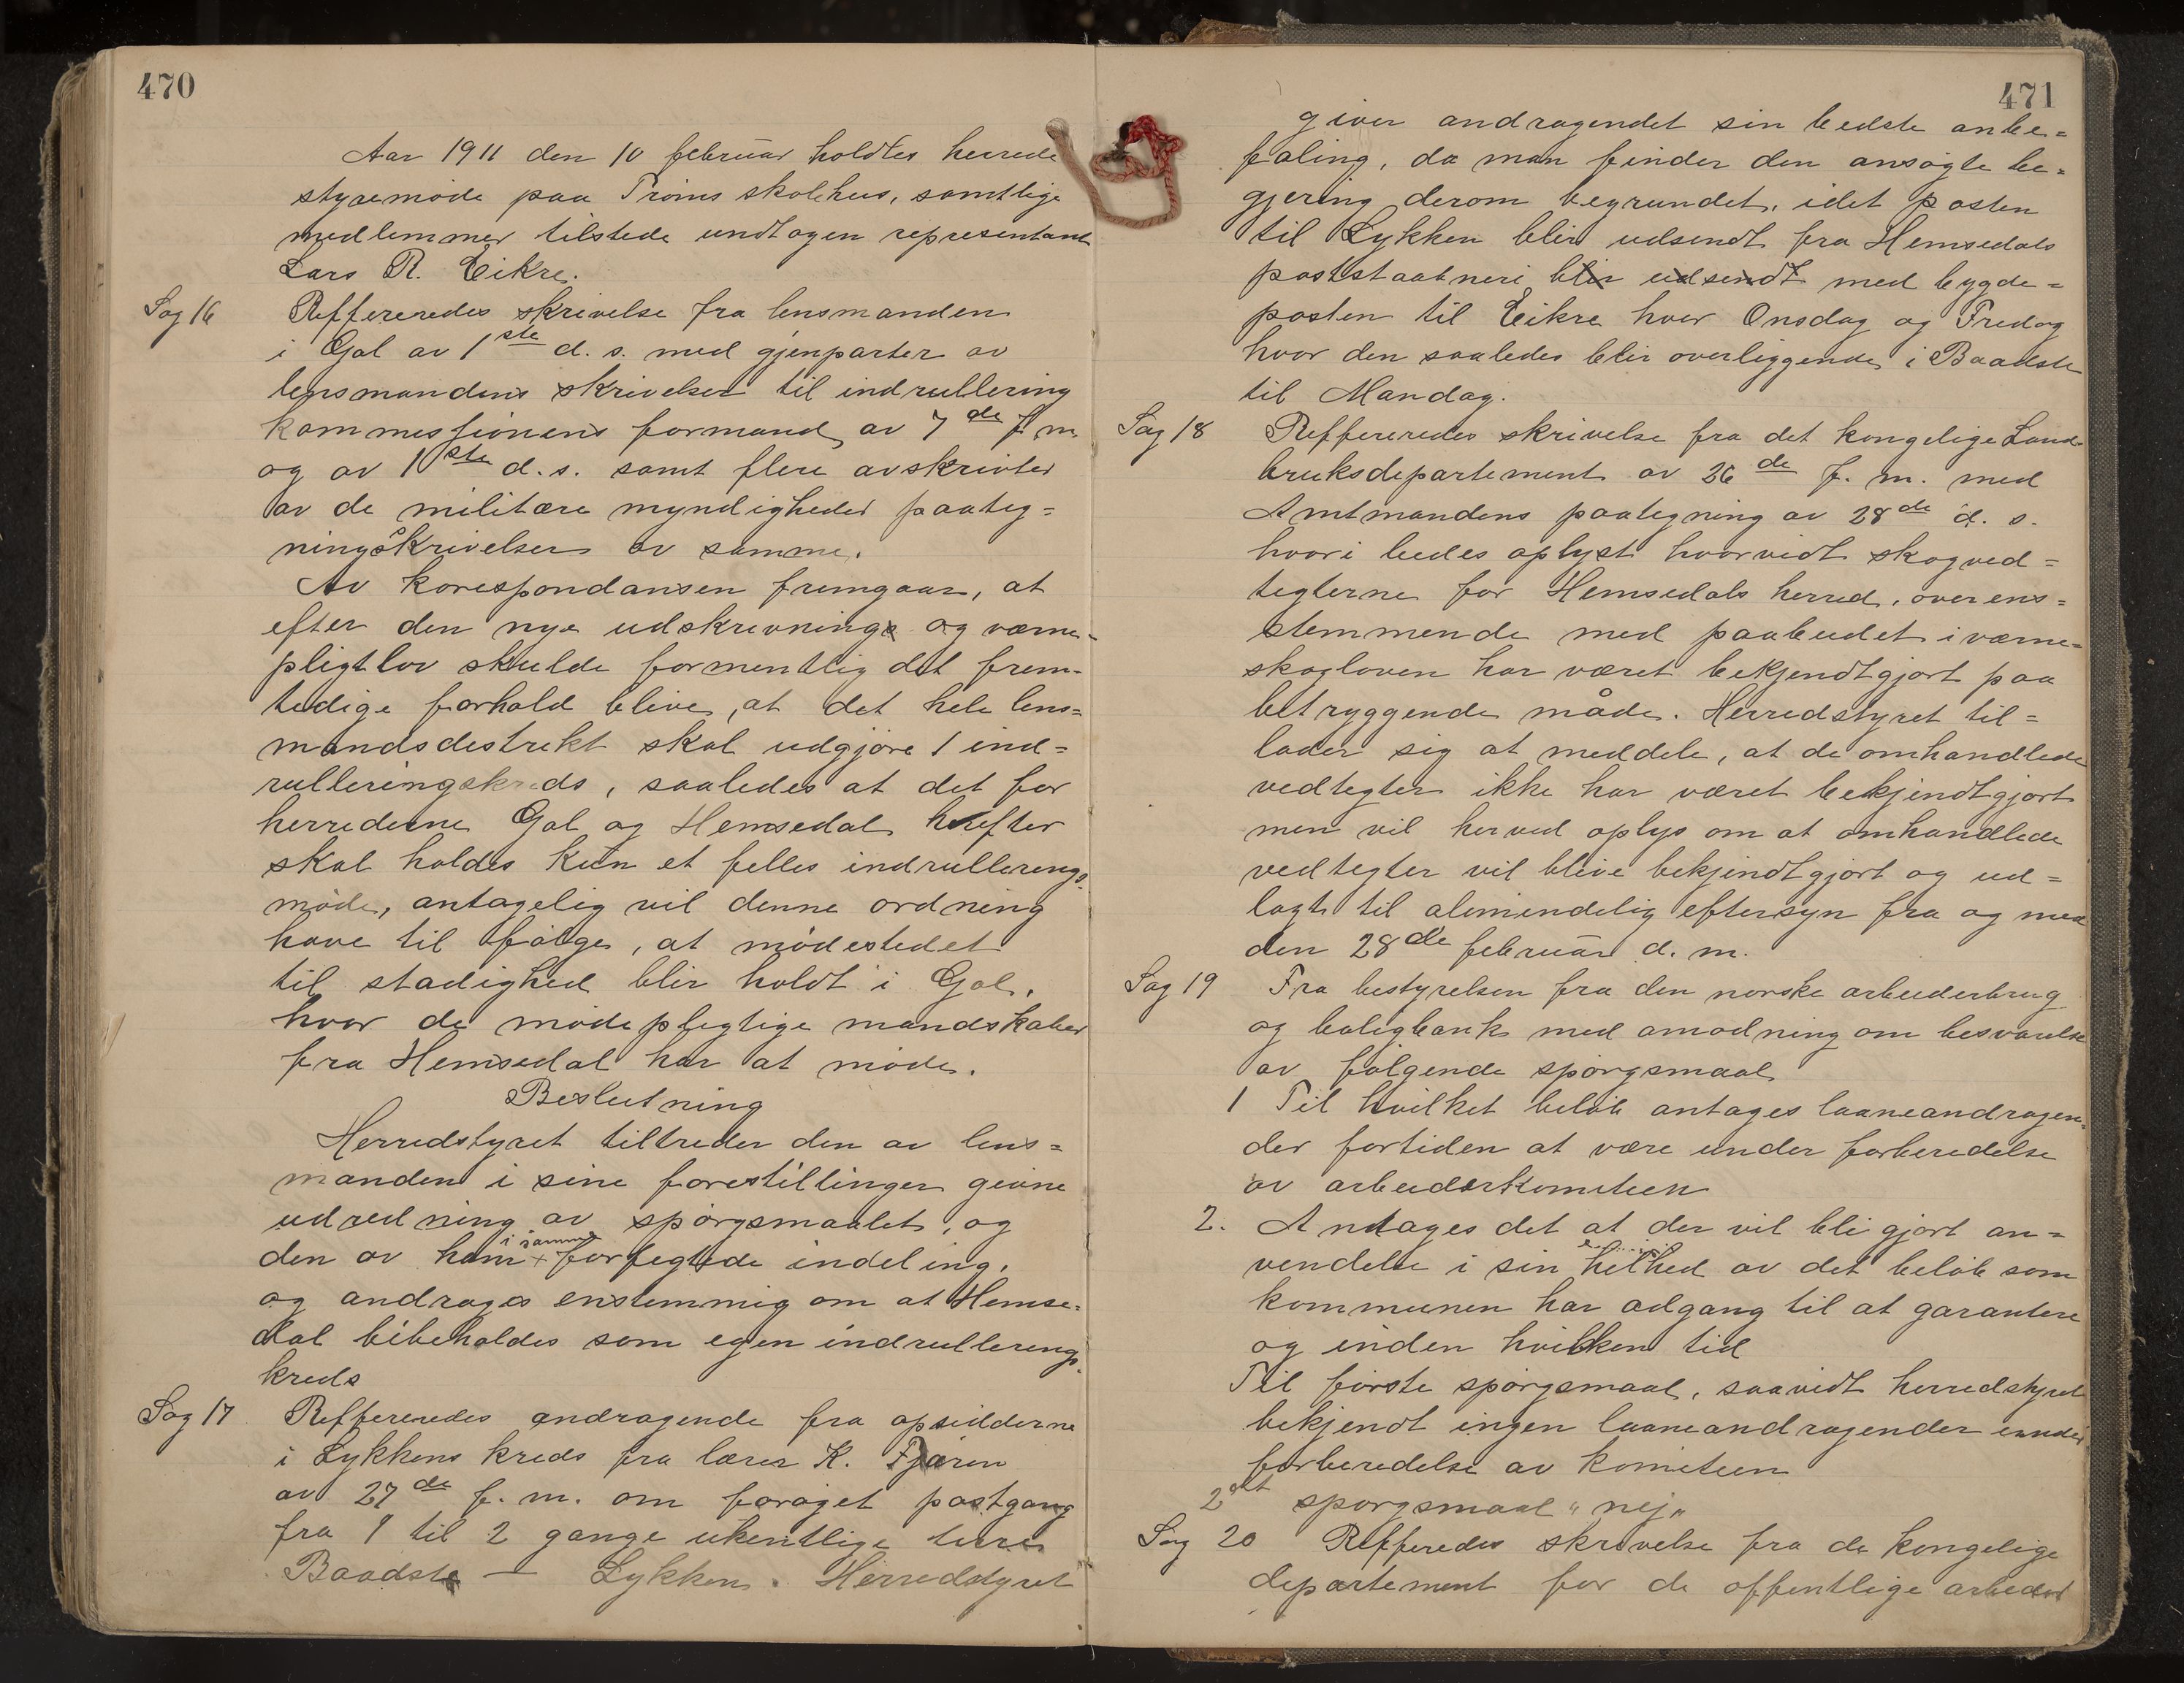 470
Aar 1911 den 10 februar holdtes herred
styremöde paa Tröims skolehus, samtlige
medlemmer tilstede undtagen representant
Lars R. Eikre.
Sag 16 Reffereredes skrivelse fra lensmanden
i Gol av 1ste d. s. med gjenparter av
lensmandens skrivelser til indrullering
kommessionens formand av 7de f. m.
og av 1ste d. s. samt flere avskrivter
av de militære myndigheder paateg=
ningsskrivelser av samme.
Av korespondansen fremgaar, at
efter den nye udskrivnings og værne-
pligtlov skulde formentlig det frem-
tidige forhold blive, at det hele lens=
mandsdestrikt skal udgjöre 1 ind=
rulleringskreds, saaledes at det for
herrederne Gol og Hemsedal herefter
skal holdes kun et felles indrullerings
möde, antagelig vil denne ordning
have til fölge, at mödestedet
til stadighed blir holdt i Gol,
hvor de mödeplegtige mandskaber
fra Hemsedal har at möde.
Beslutning
Herredstyret tiltreder den av lens=
manden i sine forestillinger givne
udredning av spörgsmaalet, og
den av ham i samme forfegtede indeling,
og andrages enstemmig om at Hemse=
dal bibeholdes som egen indrullerings-
kreds
Sag 17 Reffereredes andragende fra opsidderne
i Lykkens kreds fra lærer K.
av 27de f. m. om foröget postgang
fra 1 til 2 gange ukentlige turer
Baadstø — Lykken. Herredstyret
471
giver andragendet sin bedste anbe=
faling, da man finder den ansögte be=
gjering derom begrundet, idet posten
til Lykken blir udsendt fra Hemsedals
poststaabneri blir udsendt med bygde=
posten til Eikre hver Onsdag og Fredag
hvor den saaledes blir overliggende i Baadstø
til Mandag.
Sag 18 Reffereredes skrivelse fra det kongelige Land-
bruksdepartement av 26de f. m. med
Amtmandens paategning av 28de d. s.
hvori bedes oplyst hvorvidt skogved=
tegterne for Hemsedals herred, overens=
stemmende med paabudet i værne=
skogloven har været bekjendtgjort paa
betryggende måde. Herredstyret til=
lader sig at meddele, at de omhandlede
vedtegter ikke har været bekjendtgjort
men vil herved oplys om at omhandlede
vedtegter vil blive bekjendtgjort og ud=
lagt til alemindelig eftersyn fra og med
den 28de februar d. m.
Sag 19 Fra bestyrelsen fra den norske arbeiderbrug
og boligbank med amodning om besvarelse
av fölgende spörgsmaal
1 Til hvilket belöb antages laaneandragen=
der fortiden at være under forberedelse
av arbeiderkomiteen
2. Antages det at der vil bli gjort an=
vendelse i sin helhed av det belöb som
kommunen har adgang til at garantere
og inden hvilken tid
Til förste spörgsmaal, saavidt herredstyret
bekjendt ingen laaneandragender under
forberedelse av komiteen
2det sporgsmaal "nej"
Sag 20 Refferedes skrivelse fra de kongelige
departement for de offentlige arbeder